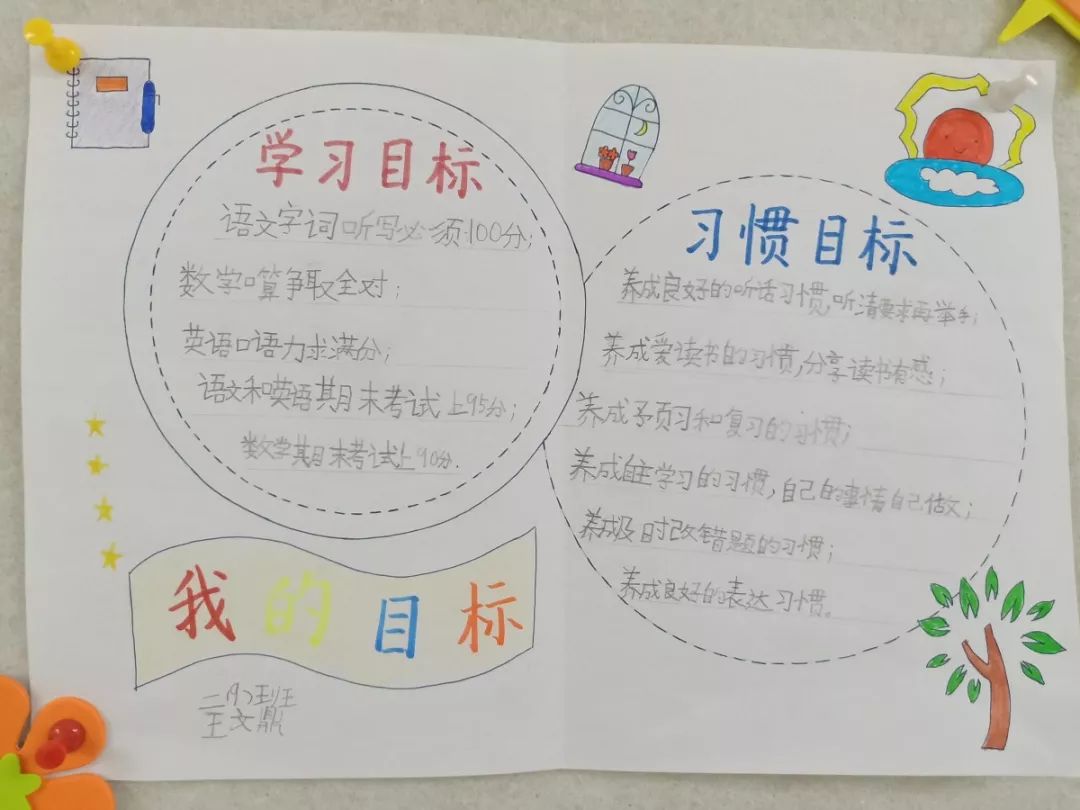 学习目标
语文字词听写必须100分;
数学口算争取全对;
英语口语力求满分;
语文和英语期末考试上95分;
数学期末考试上90分.
习惯目标
养成良好的听话习惯,听清要求再举手;
养成爱读书的习惯,分享读书有感;
养成予页习和复习的习惯;
养成自主学习的习惯,自己的事情自己做;
养成及时改错题的习惯;
养成良好的表达习惯。
我的目标
王文鼎